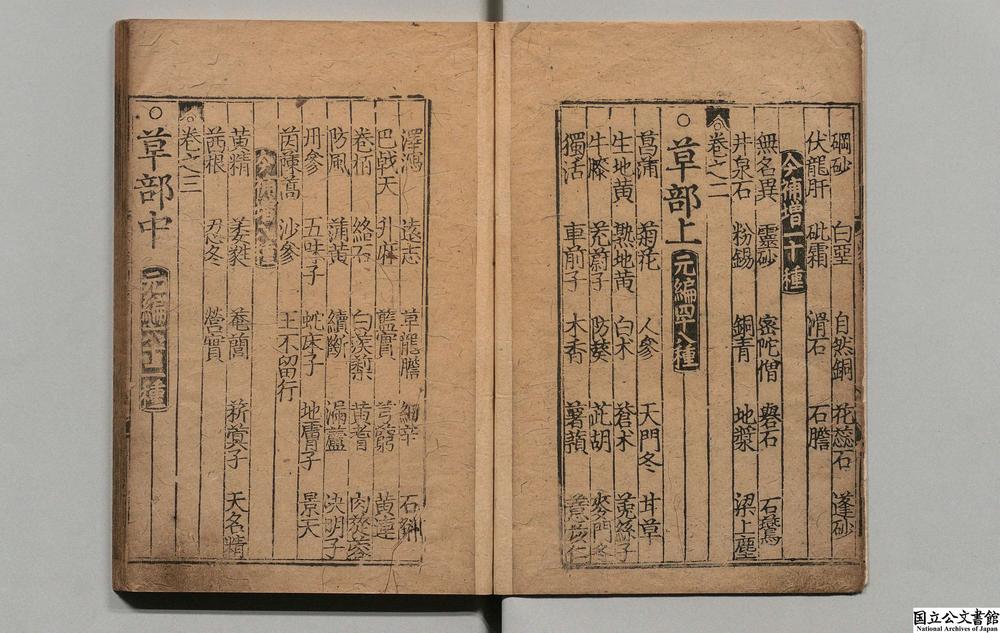 碙砂 白堊 自然銅 花蕊石 蓬砂
伏龍肝 砒霜 滑石 石膽
今補增一十種
無名異 靈砂 密陀僧 礜石 石鷰
井泉石 粉錫 銅青 地漿 梁上塵
卷之二
草部上 元編四十八種
菖蒲 菊花 人參 天門冬 甘草
生地黃 熟地黃 白朮 蒼朮 菟絲子
牛膝 茺蔚子 防葵 茈胡 麥門冬
獨活 車前子 木香 薯蕷 薏苡仁
澤瀉 遠志 草龍膽 細辛 石斛
巴戟天 升麻 藍實 芎藭 黃連
卷柏 絡石 白蒺䔧 黃耆 肉蓯蓉
防風 蒲黃 續斷 漏蘆 決明子
丹參 五味子 蛇床子 地膚子 景天
茵蔯蒿 沙參 王不留行
今補增 種
黃精 萎蕤 菴䕡 菥蓂子 天名精
茜根 忍冬 營實
卷之三
草部中 元編六十二種
国立公文書館
National Archives of Japan